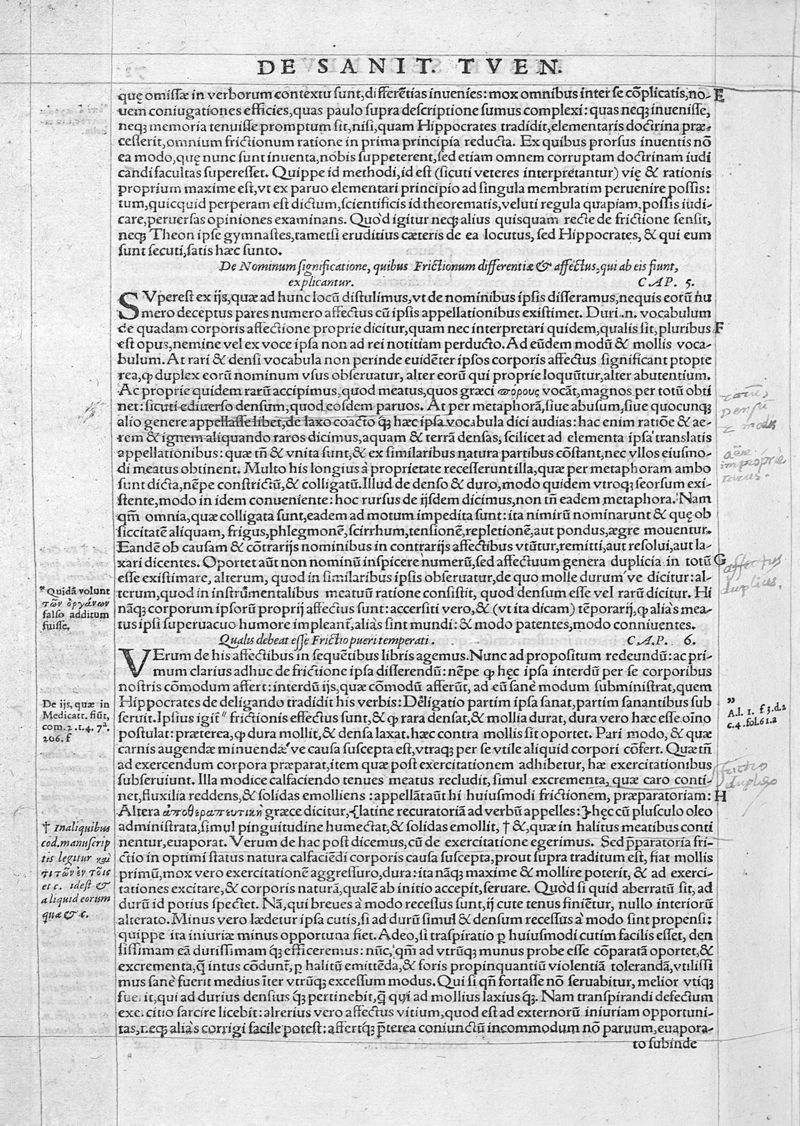 DE SANIT. TVEN.
quę omissæ in verborum contextu sunt, differētias inuenies: mox omnibus inter se cōplicatis, no- E
uem coniugationes efficies, quas paulo supra descriptione sumus complexi: quas neqꝫ inuenisse,
neqꝫ memoria tenuisse promptum sit, nisi, quam Hippocrates tradidit, elementaris doctrina præ-
cesserit, omnium frictionum ratione in prima principia reducta. Ex quibus prorsus inuentis nō
ea modo, quę nunc sunt inuenta, nobis suppeterent, sed etiam omnem corruptam doctrinam iudi
candi facultas superesset. Quippe id methodi, id est (sicuti veteres interpretantur) vię & rationis
proprium maxime est, vt ex paruo elementari principio ad singula membratim peruenire possis:
tum, quicquid perperam est dictum, scientificis id theorematis, veluti regula quapiam, possis iudi-
care, peruersas opiniones examinans. Quòd igitur neqꝫ alius quisquam recte de frictione sensit,
neqꝫ Theon ipse gymnastes, tametsi eruditius cæteris de ea locutus, sed Hippocrates, & qui eum
sunt secuti, satis hæc sunto.
De Nominum significatione, quibus Frictionum differentiæ & affectus, qui ab eis fiunt,
explicantur. CAP. 5.
SVperest ex ijs, quæ ad hunc locū distulimus, vt de nominibus ipsis disseramus, nequis eorū nu
mero deceptus pares numero affectus cū ipsis appellationibus existimet. Duri .n. vocabulum
de quadam corporis affectione proprie dicitur, quam nec interpretari quidem, qualis sit, pluribus F
est opus, nemine vel ex voce ipsa non ad rei notitiam perducto. Ad eūdem modū & mollis voca-
bulum. At rari & densi vocabula non perinde euidēter ipsos corporis affectus significant propte
rea, ꝙ duplex eorū nominum vsus obseruatur, alter eorū qui proprie loquūtur, alter abutentium.
Ac proprie quidem rarū accipimus, quod meatus, quos græci πόρους vocāt, magnos per totū obti
net: sicuti ediuerso densum, quod eosdem paruos. At per metaphorā, siue abusum, siue quocunqꝫ
alio genere appellasse libet, de laxo coacto qꝫ hæc ipsa vocabula dici audias: hac enim ratiōe & ae-
rem & ignem aliquando raros dicimus, aquam & terrā densas; scilicet ad elementa ipsa translatis
appellationibus: quæ tn̄ & vnita sunt, & ex similaribus natura partibus cōstant, nec vllos eiusmo-
di meatus obtinent. Multo his longius à proprietate recesserunt illa, quæ per metaphoram ambo
sunt dicta, nēpe constrictū, & colligatū. Illud de denso & duro, modo quidem vtroqꝫ seorsum exi-
stente, modo in idem conueniente: hoc rursus de ijsdem dicimus, non tn̄ eadem metaphora. Nam
qm̄ omnia, quæ colligata sunt, eadem ad motum impedita sunt: ita nimirū nominarunt & quę ob
siccitatē aliquam, frigus, phlegmonē, scirrhum, tensionē, repletionē, aut pondus, ægre mouentur.
Eandē ob causam & cōtrarijs nominibus in contrarijs affectibus vtūtur, remitti, aut resolui, aut la-
xari dicentes. Oportet aūt non nominū inspicere numerū, sed affectuum genera duplicia in totū G
esse existimare, alterum, quod in similaribus ipsis obseruatur, de quo molle durum 've dicitur: al-
terum, quod in instrumentalibus meatuū ratione consistit, quod densum esse vel rarū dicitur. Hi
nāqꝫ corporum ipsorū proprij affectus sunt: accersiti vero, & (vt ita dicam) tēporarij, ꝙ aliàs mea-
tus ipsi superuacuo humore impleant̄, aliàs sint mundi: & modo patentes, modo conniuentes.
Qualis debeat esse Frictio pueri temperati. CAP. 6.
VErum de his affectibus in sequētibus libris agemus. Nunc ad propositum redeundū: ac pri-
mum clarius adhuc de frictione ipsa differendū: nēpe ꝙ hęc ipsa interdū per se corporibus
nostris cōmodum affert: interdū ijs, quæ cōmodū afferūt, ad eū sanè modum subministrat, quem
Hippocrates de deligando tradidit his verbis: Deligatio partim ipsa sanat, partim sanantibus sub
seruit. Ipsius igit̄ frictionis effectus sunt, & ꝙ rara densat, & mollia durat, dura vero hæc esse oīno
postulat: præterea, ꝙ dura mollit, & densa laxat. hæc contra mollis sit oportet. Pari modo, & quæ
carnis augendæ minuendæ 've causa suscepta est, vtraqꝫ per se vtile aliquid corpori cōfert. Quæ tn̄
ad exercendum corpora præparat, item quæ post exercitationem adhibetur, hæ exercitationibus
subseruiunt. Illa modice calfaciendo tenues meatus recludit, simul excrementa, quæ caro conti-
net, fluxilia reddens, & solidas emolliens: appellāt aūt hi huiusmodi frictionem, præparatoriam: H
Altera ἀποθεραπευτικὴ græce dicitur, {latine recuratoriā ad verbū appelles:} hęc cū plusculo oleo
administrata, simul pinguitudine humectat, & solidas emollit, † &, quæ in halitus meatibus conti
nentur, euaporat. Verum de hac post dicemus, cū de exercitatione egerimus. Sed p̄paratoria fri-
ctio in optimi status natura calfaciēdi corporis causa suscepta, prout supra traditum est, fiat mollis
primū, mox vero exercitationē aggressuro, dura: ita nāqꝫ maxime & mollire poterit, & ad exerci-
tationes excitare, & corporis naturā, qualē ab initio accepit, seruare. Quòd si quid aberratū sit, ad
durū id potius spectet. Nā, qui breues à modo recessus sunt, ij cute tenus finiētur, nullo interiorū
alterato. Minus vero lædetur ipsa cutis, si ad durū simul & densum recessus à modo sint propensi:
quippe ita iniuriæ minus opportuna fiet. Adeo, si traspiratio ꝑ huiusmodi cutim facilis esset, den
sissimam eā durissimam qꝫ efficeremus: nūc, qm̄ ad vtrūqꝫ munus probe esse cōparatā oportet, &
excrementa, q̄ intus cōdunt̄, ꝑ halitū emittēda, & foris propinquantiū violentiā tolerandā, vtilissi
mus sanè fuerit medius īter vtrūqꝫ excessum modus. Qui si qn̄ fortasse nō seruabitur, melior vtiqꝫ
fuerit, qui ad durius densius qꝫ pertinebit, q̄ qui ad mollius laxius qꝫ. Nam transpirandi defectum
exercitio sarcire licebit: alterius vero affectus vitium, quod est ad externorū iniuriam opportuni-
tas, neqꝫ aliàs corrigi facile potest: affertqꝫ p̄terea coniunctū incommodum nō paruum, euapora-
to subinde
" Quidā volunt
τῶν ὀργάνων
falso additum
fuisse.
De ijs, quæ in
Medicatr. fiūt,
com. 2. t. 4. 7ᵃ.
206. f
† In aliquibus
cod. manuscrip
tis legitur καὶ
et c. idest &
aliquid eorum
quæ & c.
rarus,
densus
& modis
improprie
affectus
duplius.
"
A.l. 1. f 3. d. 2
c. 4. fol. 61. 2
frictio
duplex